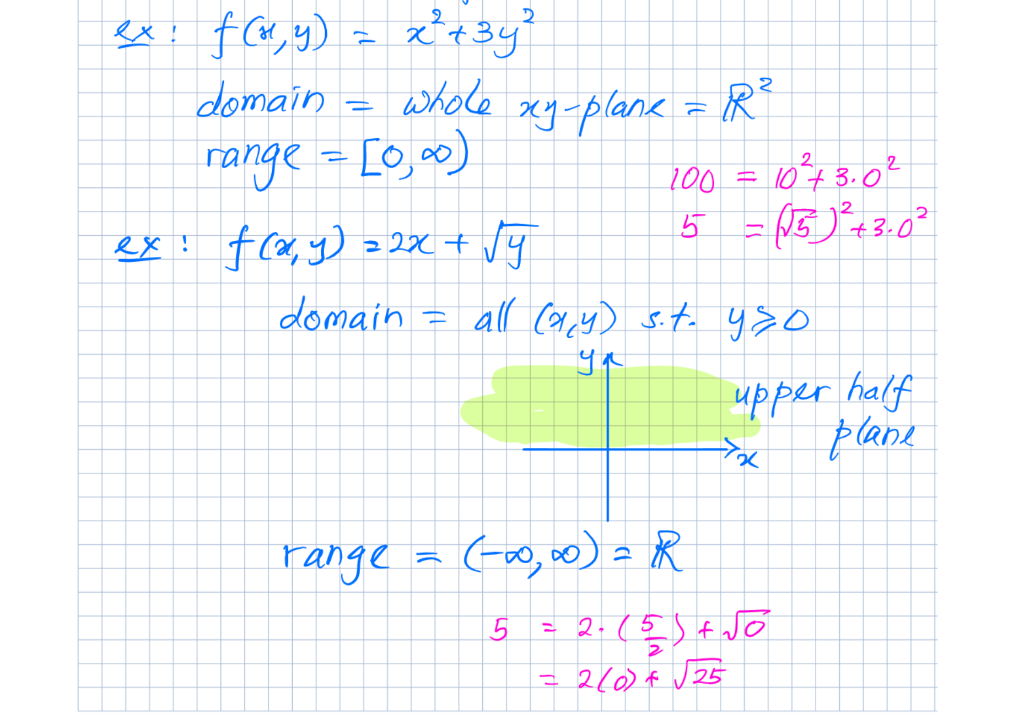 ex: f(x,y) = x²+3y²
domain = whole xy-plane = ℝ²
range = [0,∞)
100 = 10²+3·0²
5 = (√5)²+3·0²
ex: f(x,y) = 2x + √y
domain = all (x,y) s.t. y⩾0
y
upper half
plane
x
range = (-∞,∞) = ℝ
5 = 2·(5/2)+√0
= 2(0)+√25